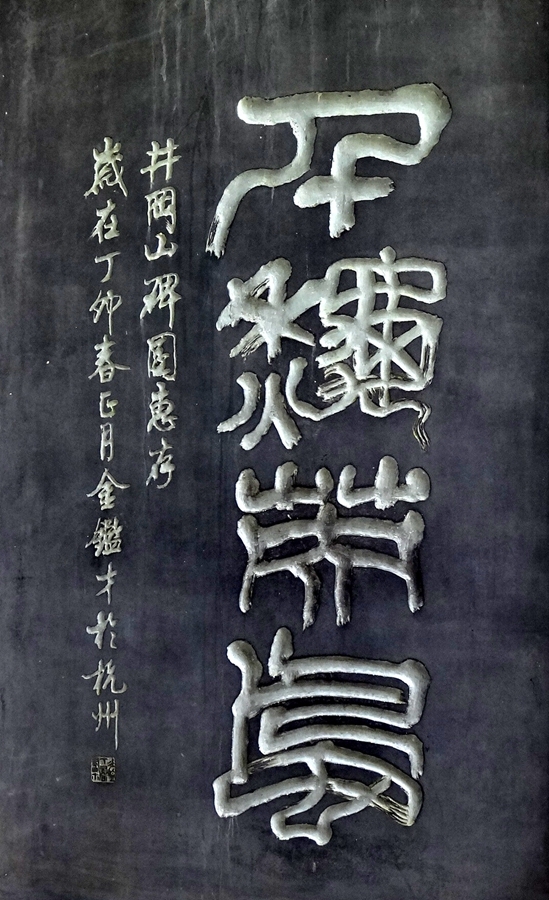 龝
井岡山碑園惠存
歲在丁卯春正月金鑑才於杭州